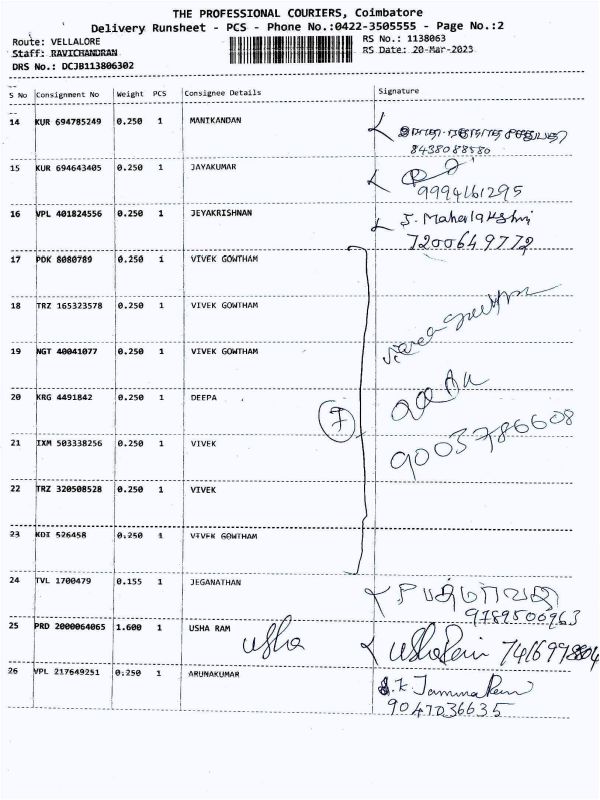 THE PROFESSIONAL COURIERS, Coimbatore
Delivery Runsheet - PCS - Phone No.:0422-3505555 - Page No.:2
Route: VELLALORE RS No.: 1138063
Staff: RAVICHANDRAN RS Date: 20-Mar-2023
DRS No.: DCJB113806302
S No Consignment No Weight PCS Consignee Details Signature
14 KUR 694785249 0.250 1 MANIKANDAN
8438088580
15 KUR 694643405 0.250 1 JAYAKUMAR
9994161295
16 VPL 401824556 0.250 1 JEYAKRISHNAN J. Mahalakshmi
7200649772
17 PDK 8080789 0.250 1 VIVEK GOWTHAM
18 TRZ 165323578 0.250 1 VIVEK GOWTHAM
19 NGT 40041077 0.250 1 VIVEK GOWTHAM
20 KRG 4491842 0.250 1 DEEPA 7
21 IXM 503338256 0.250 1 VIVEK 9003786608
22 TRZ 320508528 0.250 1 VIVEK
23 KDI 526458 0.250 1 VIVEK GOWTHAM
24 TVL 1700479 0.155 1 JEGANATHAN P பத்மாவதி
9789500963
25 PRD 2000064065 1.600 1 USHA RAM usha
26 VPL 217649251 0.250 1 ARUNAKUMAR
9047036635